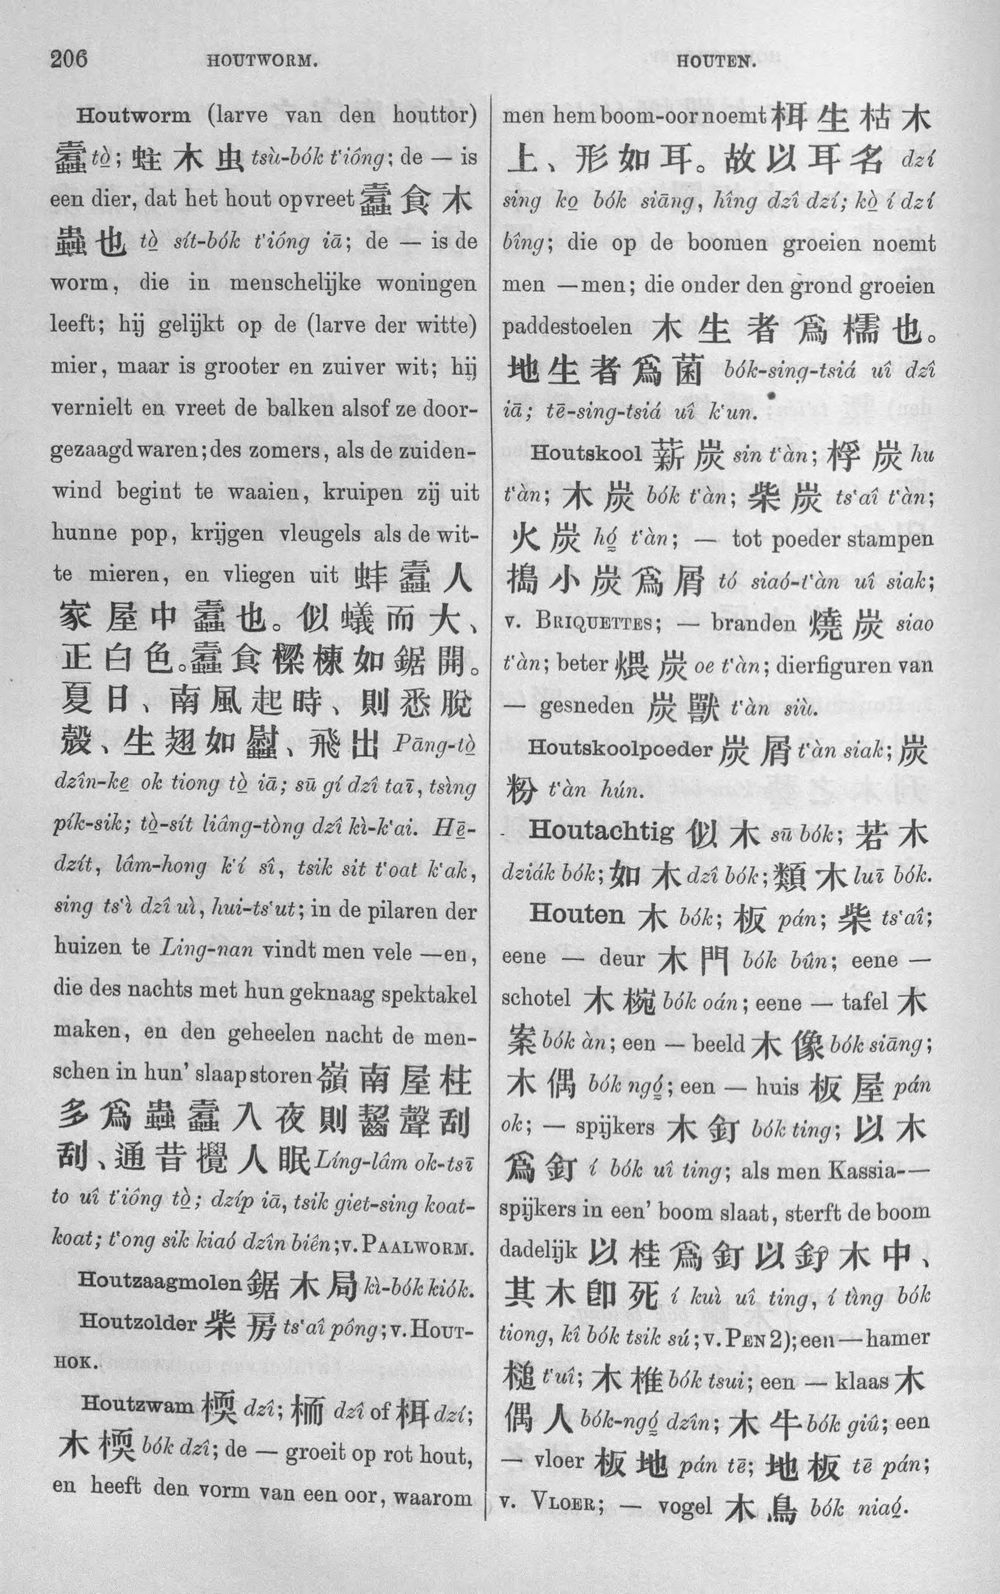 206
HOUTWORM.
HOUTEN.
Houtworm (larve van den houttor)
蠹 tò̤; 蛀木虫 tsù-bók t'ióng; de — is
een dier, dat het hout opvreet 蠹食木
蟲也 tò̤ sít-bók t'ióng iā; de — is de
worm, die in menschelijke woningen
leeft; hij gelijkt op de (larve der witte)
mier, maar is grooter en zuiver wit; hij
vernielt en vreet de balken alsof ze door-
gezaagd waren; des zomers, als de zuiden-
wind begint te waaien, kruipen zij uit
hunne pop, krijgen vleugels als de wit-
te mieren, en vliegen uit 蚌蠹人
家屋中蠹也。似蟻而大、
正白色。蠹食樑棟如鋸開。
夏日、南風起時、則悉脫
殼、生翅如螱、飛出 Pāng-tò̤
dzîn-ke̤ ok tiong tò̤ iā; sū gí dzî taī, tsìng
pík-sik; tò̤-sít liâng-tòng dzî kì-k'ai. Hē̤-
dzít, lâm-hong k'í sî, tsik sit t'oat k'ak,
sing ts'ì dzî uì, hui-ts'ut; in de pilaren der
huizen te Ling-nan vindt men vele —en,
die des nachts met hun geknaag spektakel
maken, en den geheelen nacht de men-
schen in hun' slaap storen 嶺南屋柱
多爲蟲蠹入夜則齧聲刮
刮、通昔攪人眠 Líng-lâm ok-tsī
to uî t'ióng tò̤; dzíp iā, tsik giet-sing koat-
koat; t'ong sik kiaó dzîn biên; v. PAALWORM.
Houtzaagmolen 鋸木局 kì-bók kiók.
Houtzolder 柴房 ts'aî pông; v. HOUT-
HOK.
Houtzwam 檽 dzî; 栭 dzî of 栮 dzí;
木檽 bók dzî; de — groeit op rot hout,
en heeft den vorm van een oor, waarom
men hem boom-oor noemt 栮生枯木
上、形如耳。故以耳名 dzí
sing ko̤ bók siāng, hîng dzî dzí; kò̤ í dzí
bîng; die op de boomen groeien noemt
men —men; die onder den grond groeien
paddestoelen 木生者爲檽也。
地生者爲菌 bók-sing-tsiá uî dzî
iā; tē-sing-tsiá uî k'un.
Houtskool 薪炭 sin t'àn; 桴炭 hu
t'àn; 木炭 bók t'àn; 柴炭 ts'aî t'àn;
火炭 hó̤ t'àn; — tot poeder stampen
搗小炭爲屑 tó siaó-t'àn uî siak;
v. BRIQUETTES; — branden 燒炭 siao
t'àn; beter 煨炭 oe t'àn; dierfiguren van
— gesneden 炭獸 t'àn siù.
Houtskoolpoeder 炭屑 t'àn siak; 炭
粉 t'àn hún.
Houtachtig 似木 sū bók; 若木
dziák bók; 如木 dzî bók; 類木 luī bók.
Houten 木 bók; 板 pán; 柴 ts'aî;
eene — deur 木門 bók bûn; eene —
schotel 木椀 bók oán; eene — tafel 木
案 bók àn; een — beeld 木像 bók siāng;
木偶 bók ngó̤; een — huis 板屋 pán
ok; — spijkers 木釘 bók ting; 以木
爲釘 í bók uî ting; als men Kassia-—
spijkers in een' boom slaat, sterft de boom
dadelijk 以桂爲釘以釘木中、
其木卽死 í kuì uî ting, í tìng bók
tiong, kî bók tsik sú; v. PEN 2); een — hamer
槌 t'uî; 木椎 bók tsui; een — klaas 木
偶人 bók-ngó̤ dzîn; 木牛 bók giû; een
— vloer 板地 pán tē; 地板 tē pán;
v. VLOER; — vogel 木鳥 bók niaó̤.